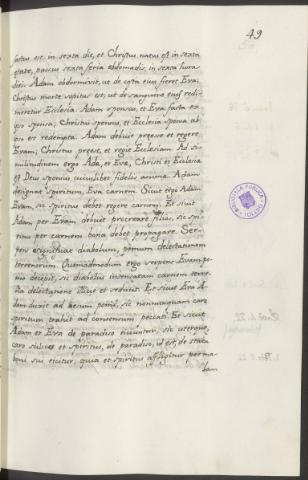 49
factus est, in sexta die, et Christus natus est in sexta
etate, passus sexta feria ebdomadis, in sexta hora
diei. Adam obdormivit, ut de costa eius fieret Eva;
Christus morte sopitus est, ut de sanguine eius redi-
meretur Ecclesia. Adam sponsus, et Eva facta ex
ipso sponsa; Christus sponsus, et Ecclesia sponsa ab
ipso est redempta. Adam debuit preesse et regere
Evam; Christus preest, et regit Ecclesiam. Ad si-
militudinem ergo Ade, et Eve, Christi et Ecclesia
est Deus sponsus cuiuslibet fidelis anime. Adam
designat spiritum, Eva carnem. Sicut ergo Adam
Evam, sic spiritus debet regere carnem. Et sicut
Adam per Evam debuit procreare filios, sic spi-
ritus per carnem bona debet propagare. Ser-
pens significat diabolum, pomum delectationem
terrenorum. Quemadmodum ergo serpens Evam po-
mo decepit, sic diabolus insensatam carnem terre-
na delectatione illicit et seducit. Et sicut Eva A-
dam duxit ad esum pomi, sic nonnumquam caro
spiritum trahit ad consensum peccati. Et sicut
Adam et Eva de paradiso eiciuntur, sic uterque,
caro scilicet et spiritus, de paradiso, id est, de statu
boni sui eicitur, quia et spiritus affligitur per ma-
lam
BIBLIOTECA PUBLICA
TOLEDO